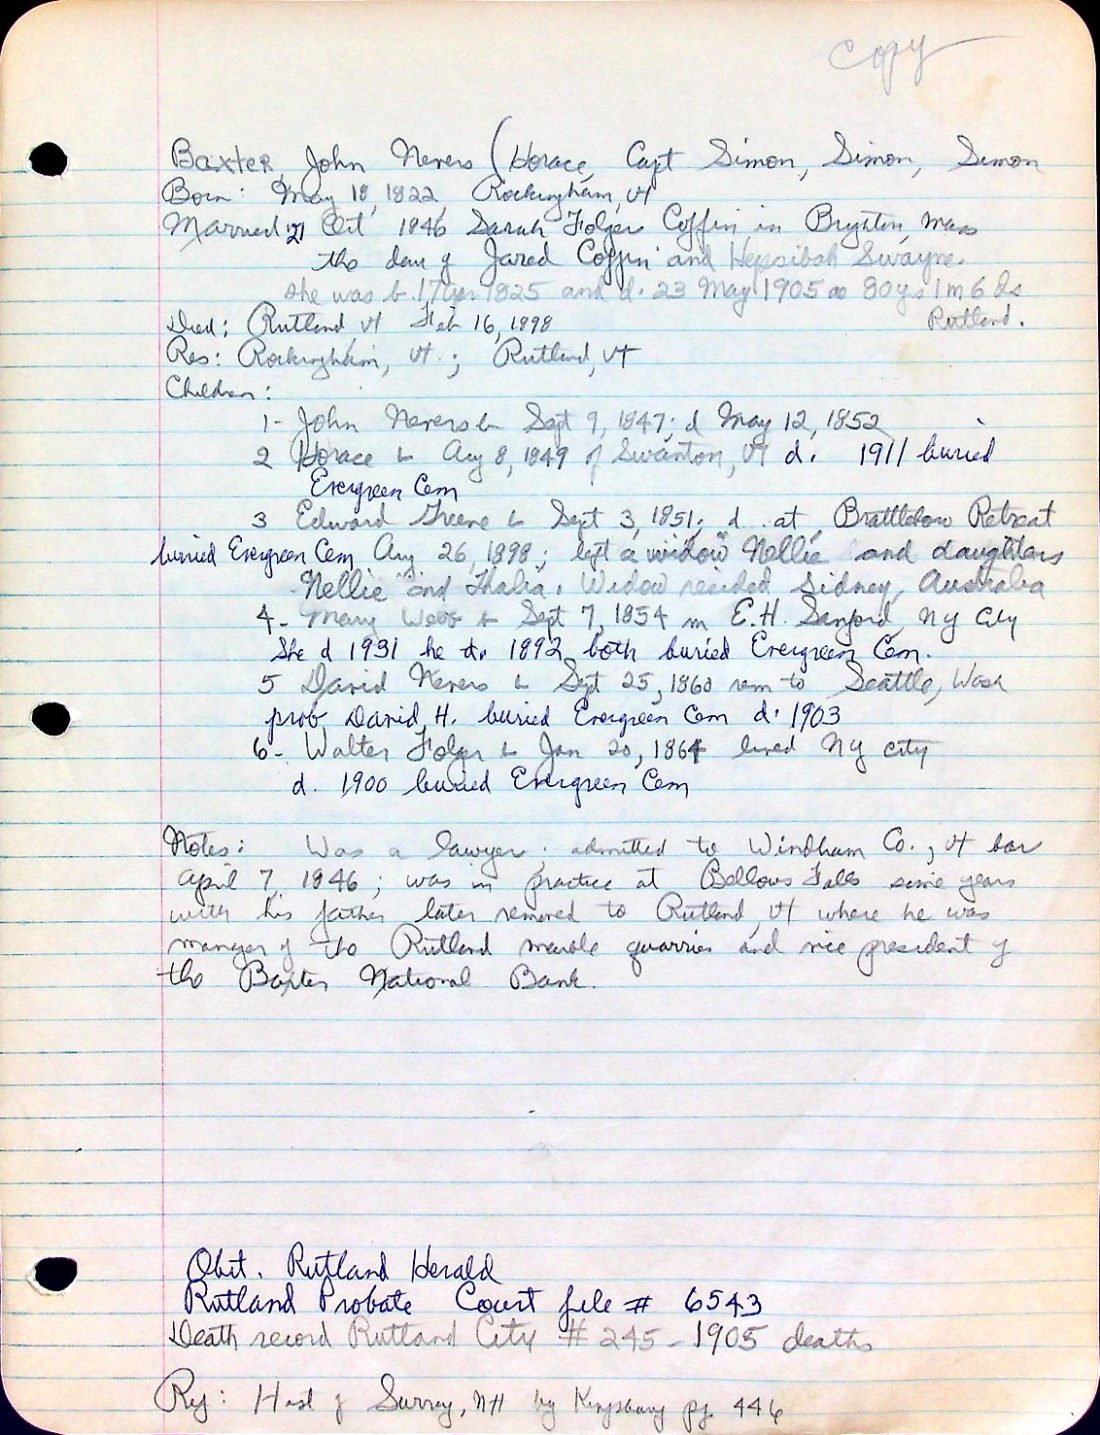 Copy
Baxter, John Nevers (Horace, Capt Simon, Simon, Simon
Born: May 18, 1822 Rockingham, Vt
Married 21 Oct 1846 Sarah Folger Coffin in Bryton, Mass
the dau of Jared Coffin and Hepsibah Swayne.
she was b. 17 Apr 1825 and d. 23 May 1905 ae 80ys 1m 6ds
Rutland.
Died: Rutland Vt Feb 16, 1898
Res: Rockingham, Vt.; Rutland, Vt
Children:
1- John Nevers b Sept 9, 1847; d May 12, 1852
2 Horace b Aug 8, 1849 of Swanton, Vt d. 1911 buried
Evergreen Cem
3 Edward Greene b Sept 3, 1851; d. at Brattleboro Retreat
buried Evergreen Cem Aug 26, 1898; left a widow "Nellie" and daughters
Nellie and Thalia. Widow resided Sidney, Australia
4- Mary Webb b Sept 7, 1854 m E.H. Sanford, NY City
She d 1931 he d. 1892 both buried Evergreen Cem.
5 David Nevers b Sept 25, 1860 rem to Seattle, Wash
prob David H. buried Evergreen Cem d. 1903
6- Walter Folger b Jan 20, 1864 lived NY city
d. 1900 buried Evergreen Cem
Notes: Was a lawyer; admitted to Windham Co., Vt bar
April 7, 1846; was in practice at Bellows Falls some years
with his father later removed to Rutland, Vt where he was
manger of the Rutland marble quarries and vice president of
the Baxter National Bank.
Obit. Rutland Herald
Rutland Probate Court file # 6543
Death record Rutland City # 245 - 1905 deaths
Ref: Hist of Surrey, NH by Kingsbury pg 446